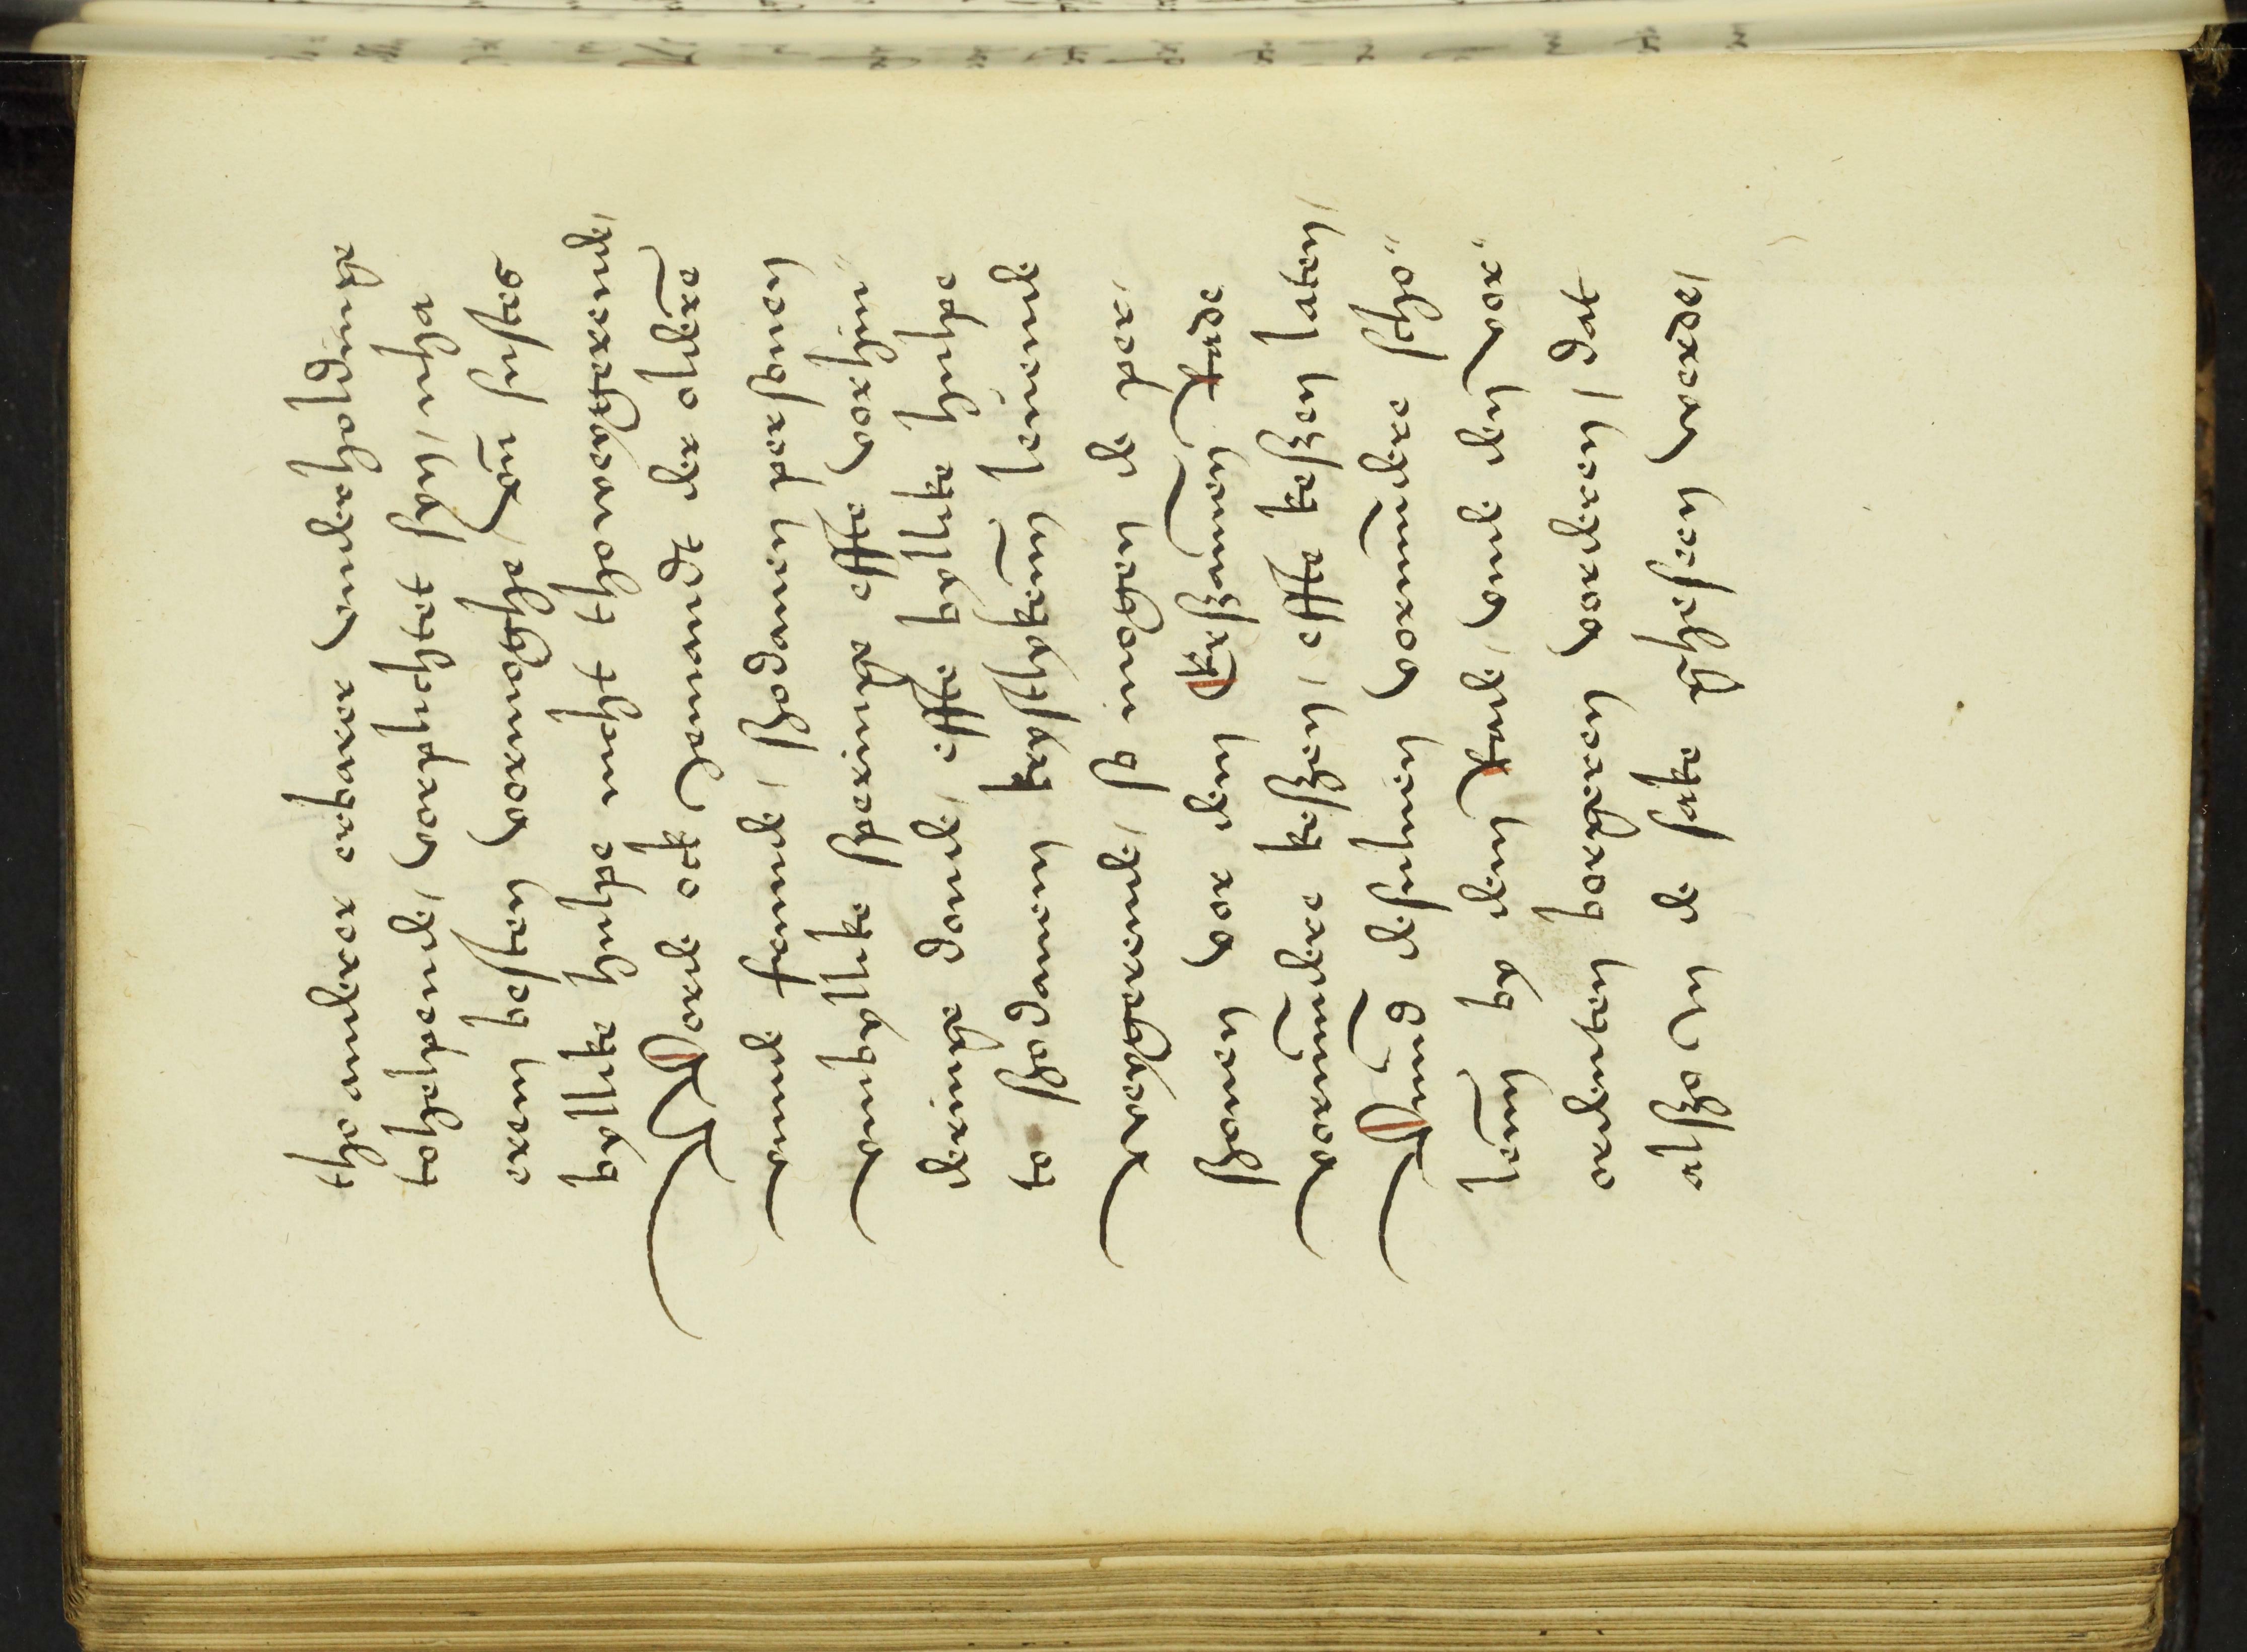 tho anderer erbarer vnderholdinge
tohelpende, vorplichtet syn, nha
erem besten vormoghe, Vn̄ susteѕ
byllike hulpe nicht thoweygerende,
Worde ock Jemandt der oldere
vnnde frunde, ßodanen personen
vnbyllike speringe effte vorhin"
deringe donde, effte byllike hulpe
to ßodanem keysslykem̄ leuende
weygerende, so mogen de per,
ßonen vor dem Kerßpannen Rade
vormu̅dere keßen, effte keßen laten,
Vnnd desuluen vormu̅dere scho"
len̄ by dem Rade, vnde den vor"
ordenten borgeren vorderen, dat
alßo Jn de sake gheseen werde,